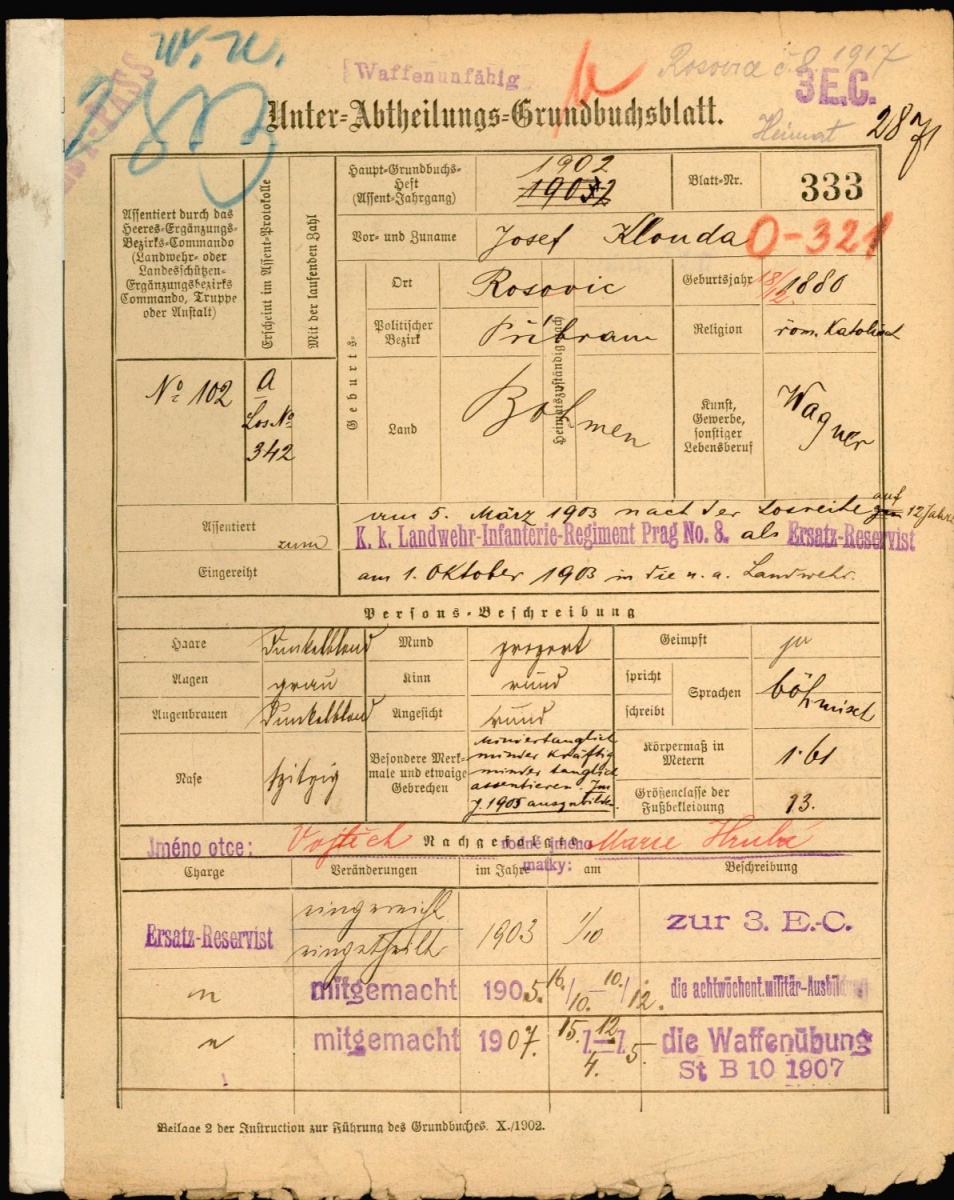 W. U.
Waffenunfähig
Rosovice č. 8 1917
3 E.C.
Heimat
Unter-Abtheilungs-Grundbuchsblatt.
Assentiert durch das
Heeres-Ergänzungs-
Bezirks-Commando
(Landwehr- oder
Landesschützen-
Ergänzungsbezirks
Commando, Truppe
oder Anstalt)
Erscheint im Assent-Protokolle
Mit der laufenden Zahl
Haupt-Grundbuchs-
Heft
(Assent-Jahrgang)
1902
Blatt-Nr.
333
Vor- und Zuname
Josef Klouda
O-321
Geburts-
Ort
Rosovic
Geburtsjahr
18/12. 1880
Politischer
Bezirk
Příbram
Religion
röm. Katolisch
Heimatszuständig nach
Land
Böhmen
Kunst,
Gewerbe,
sonstiger
Lebensberuf
Wagner
No 102
a
Los No
342
Assentiert
am 5. März 1903 nach der Losreihe auf 12 Jahre
zum
K. k. Landwehr-Infanterie-Regiment Prag No. 8. als Ersatz-Reservist
Eingereiht
am 1. Oktober 1903 in die n. a. Landwehr.
Persons-Beschreibung
Haare
Dunkelblond
Mund
proport
Geimpft
ja
Augen
grau
Kinn
rund
spricht
schreibt
Sprachen
böhmisch
Augenbrauen
Dunkelblond
Angesicht
rund
Nase
spitzig
Besondere Merk-
male und etwaige
Gebrechen
Mindertauglich
minder kräftig
minder tauglich
assentieren. Im
J. 1905 auszubilden.
Körpermaß in
Metern
1·61
Größenclasse der
Fußbekleidung
13.
Jméno otce:
Vojtěch
rodné jméno
matky:
Marie Hrubá
Charge
Veränderungen
im Jahre
am
Beschreibung
Ersatz-Reservist
eingereiht
eingetheilt
1903
1/10
zur 3. E.-C.
"
mitgemacht
1905.
16./10.–10./12.
die achtwöchent. militär-Ausbildung
"
mitgemacht
1907.
15./4.–12./5.
die Waffenübung
St B 10 1907
Beilage 2 der Instruction zur Führung des Grundbuches. X./1902.